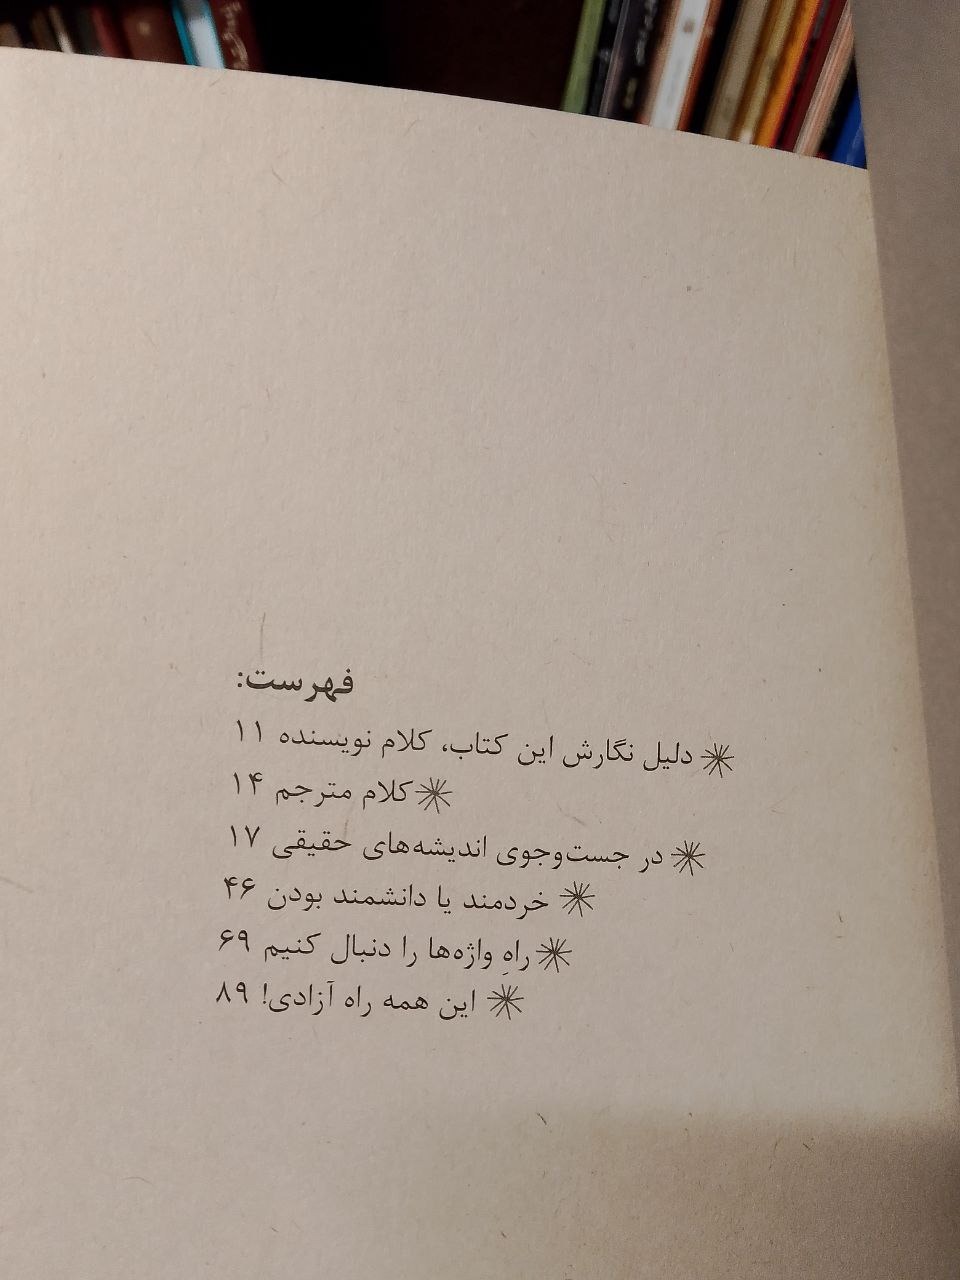 فهرست:
دلیل نگارش این کتاب، کلام نویسنده ۱۱
کلام مترجم ۱۴
در جست‌وجوی اندیشه‌های حقیقی ۱۷
خردمند یا دانشمند بودن ۴۶
راهِ واژه‌ها را دنبال کنیم ۶۹
این همه راه آزادی! ۸۹